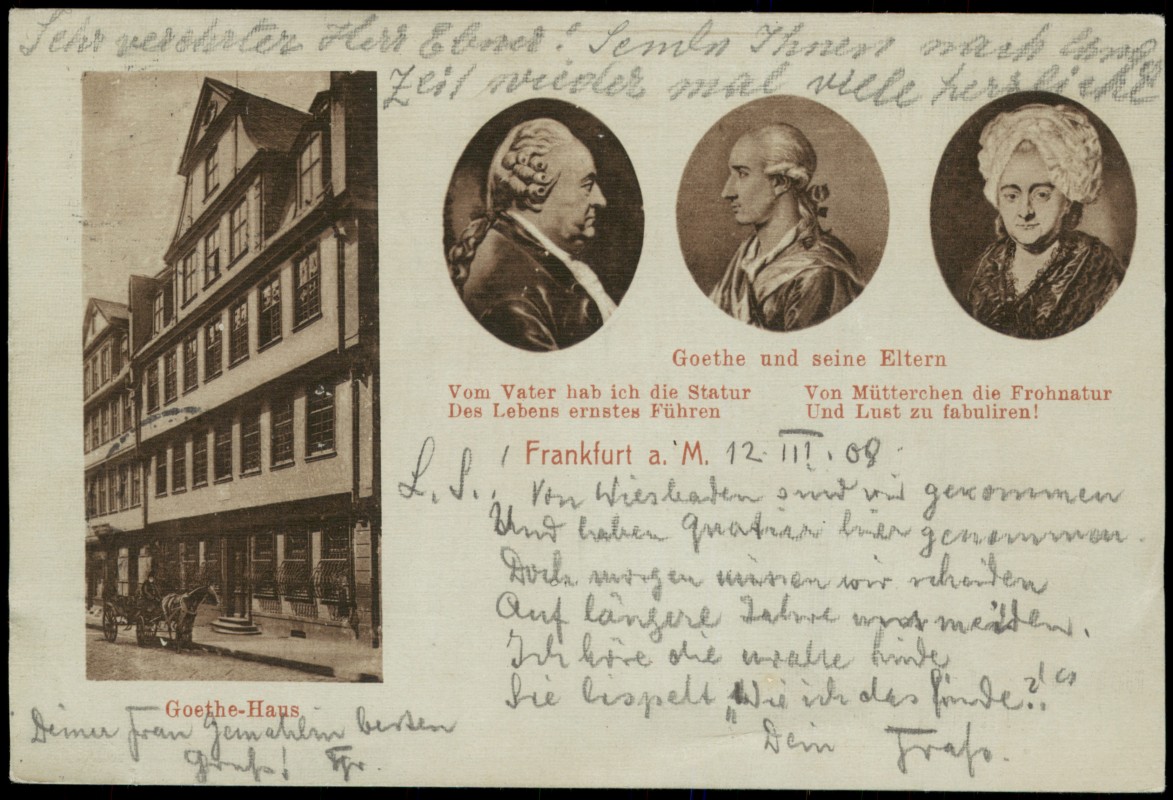 Sehr verehrter Herr Ebner! Sende Ihnen nach
Zeit wieder mal viele herzliche
Goethe und seine Eltern
Vom Vater hab ich die Statur
Des Lebens ernstes Führen
Von Mütterchen die Frohnatur
Und Lust zu fabuliren!
Frankfurt a. M. 12. III. 08.
L. S.! Von Wiesbaden sind wir gekommen
Und haben Quatier hier genommen.
Doch morgen müssen wir scheiden
Auf längere Jahre uns meiden.
Ich höre die uralte Linde
Sie lispelt „Wie ich das finde?!"
Dein
Goethe-Haus
Deiner Frau Gemahlin besten
Gruß!